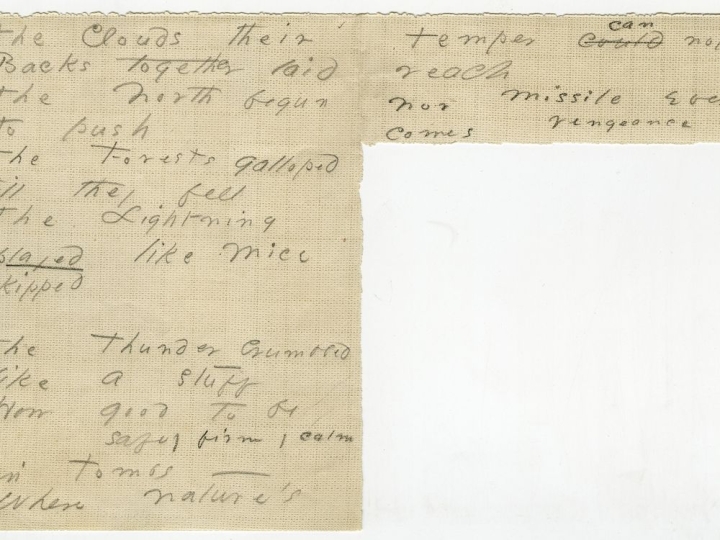 the Clouds their
Backs together laid
the North begun
to push
the Forests galloped
ill they fell
the Lightning
played like mice
kipped
he Thunder crumbled
like a stuff
How good to be
safe, firm, calm
in tombs —
Where nature's
can
temper could no
reach
nor missile eve
comes vengeance